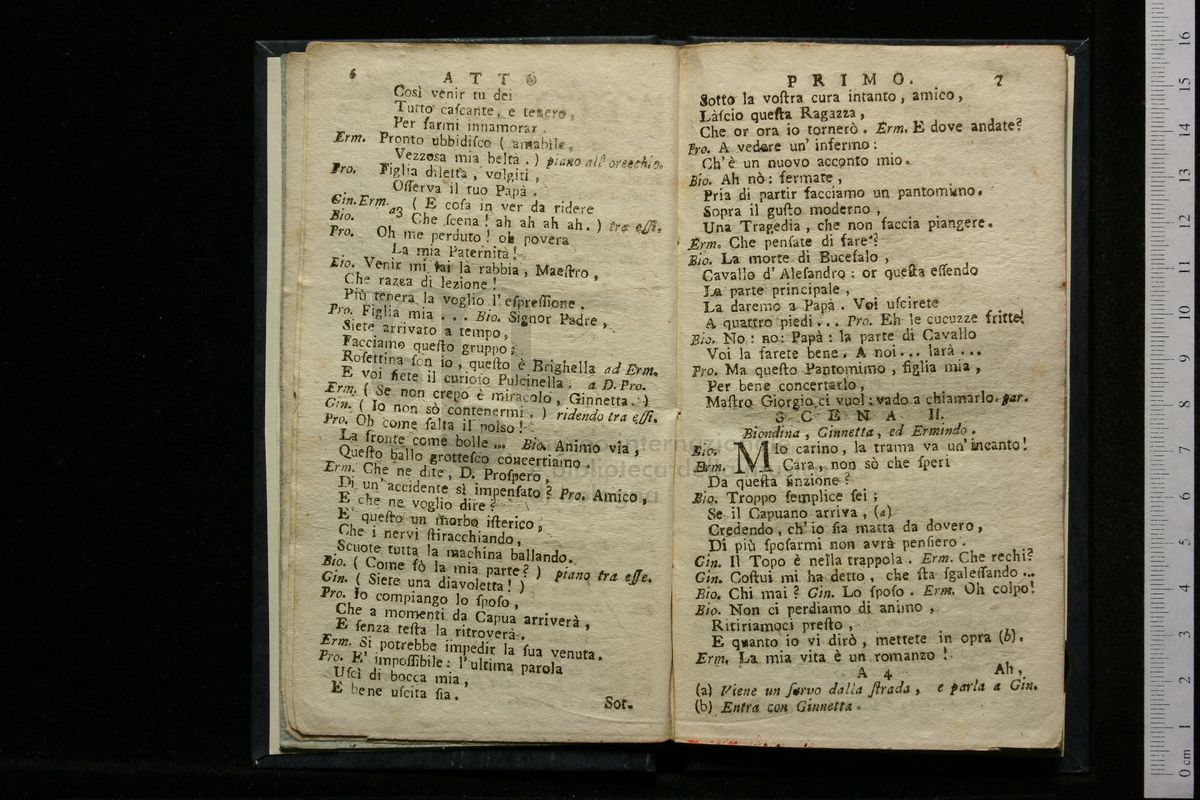 6 ATTO
Così venir tu dei
Tutto caſcante, e tenero,
Per farmi innamorar.
Erm. Pronto ubbidiſco ( amabile,
Vezzoſa mia beltà. ) piano all' orecchio.
Pro. Figlia diletta, volgiti,
Oſſerva il tuo Papà.
Gin. Erm. ( E coſa in ver da ridere
Bio. a3 Che ſcena! ah ah ah ah. ) tra eſſi.
Pro. Oh me perduto! oh povera
La mia Paternità!
Bio. Venir mi fai la rabbia, Maeſtro,
Che razza di lezione!
Più tenera la voglio l'eſpreſſione.
Pro. Figlia mia ... Bio. Signor Padre,
Siete arrivato a tempo,
Facciamo queſto gruppo;
Roſettina ſon io, queſto è Brighella ad Erm.
E voi ſiete il curioſo Pulcinella. a D. Pro.
Erm. ( Se non crepo è miracolo, Ginnetta. )
Gin. ( Io non sò contenermi. ) ridendo tra eſſi.
Pro. Oh come ſalta il polso!
La fronte come bolle ... Bio. Animo via,
Queſto ballo grotteſco concertiamo.
Erm. Che ne dite, D. Proſpero,
Di un' accidente sì impenſato? Pro. Amico,
E che ne voglio dire?
E' queſto un morbo iſterico,
Che i nervi ſtiracchiando,
Scuote tutta la machina ballando.
Bio. ( Come fò la mia parte? ) piano tra eſſe.
Gin. ( Siete una diavoletta! )
Pro. Io compiango lo ſpoſo,
Che a momenti da Capua arriverà,
E ſenza teſta la ritroverà.
Erm. Si potrebbe impedir la ſua venuta.
Pro. E' impoſſibile: l'ultima parola
Uſcì di bocca mia,
E bene uſcita ſia.
Sot.
PRIMO. 7
Sotto la voſtra cura intanto, amico,
Làſcio queſta Ragazza,
Che or ora io tornerò. Erm. E dove andate?
Pro. A vedere un' infermo:
Ch'è un nuovo acconto mio.
Bio. Ah nò: fermate,
Pria di partir facciamo un pantomimo.
Sopra il guſto moderno,
Una Tragedia, che non faccia piangere.
Erm. Che penſate di fare?
Bio. La morte di Bucefalo,
Cavallo d' Aleſandro: or queſta eſſendo
La parte principale,
La daremo a Papà. Voi uſcirete
A quattro piedi... Pro. Eh le cucuzze fritte!
Bio. No: no: Papà: la parte di Cavallo
Voi la farete bene. A noi... larà ...
Pro. Ma queſto Pantomimo, figlia mia,
Per bene concertarlo,
Maſtro Giorgio ci vuol: vado a chiamarlo. par.
SCENA II.
Biondina, Ginnetta, ed Ermindo.
Bio. MIo carino, la trama va un' incanto!
Erm. Cara, non sò che ſperi
Da queſta finzione?
Bio. Troppo ſemplice ſei;
Se il Capuano arriva, (a)
Credendo, ch' io ſia matta da dovero,
Di più ſpoſarmi non avrà penſiero.
Gin. Il Topo è nella trappola. Erm. Che rechi?
Gin. Coſtui mi ha detto, che ſta sgaleſſando ...
Bio. Chi mai? Gin. Lo ſpoſo. Erm. Oh colpo!
Bio. Non ci perdiamo di animo,
Ritiriamoci preſto,
E quanto io vi dirò, mettete in opra (b).
Erm. La mia vita è un romanzo!
A 4 Ah,
(a) Viene un ſervo dalla ſtrada, e parla a Gin.
(b) Entra con Ginnetta.